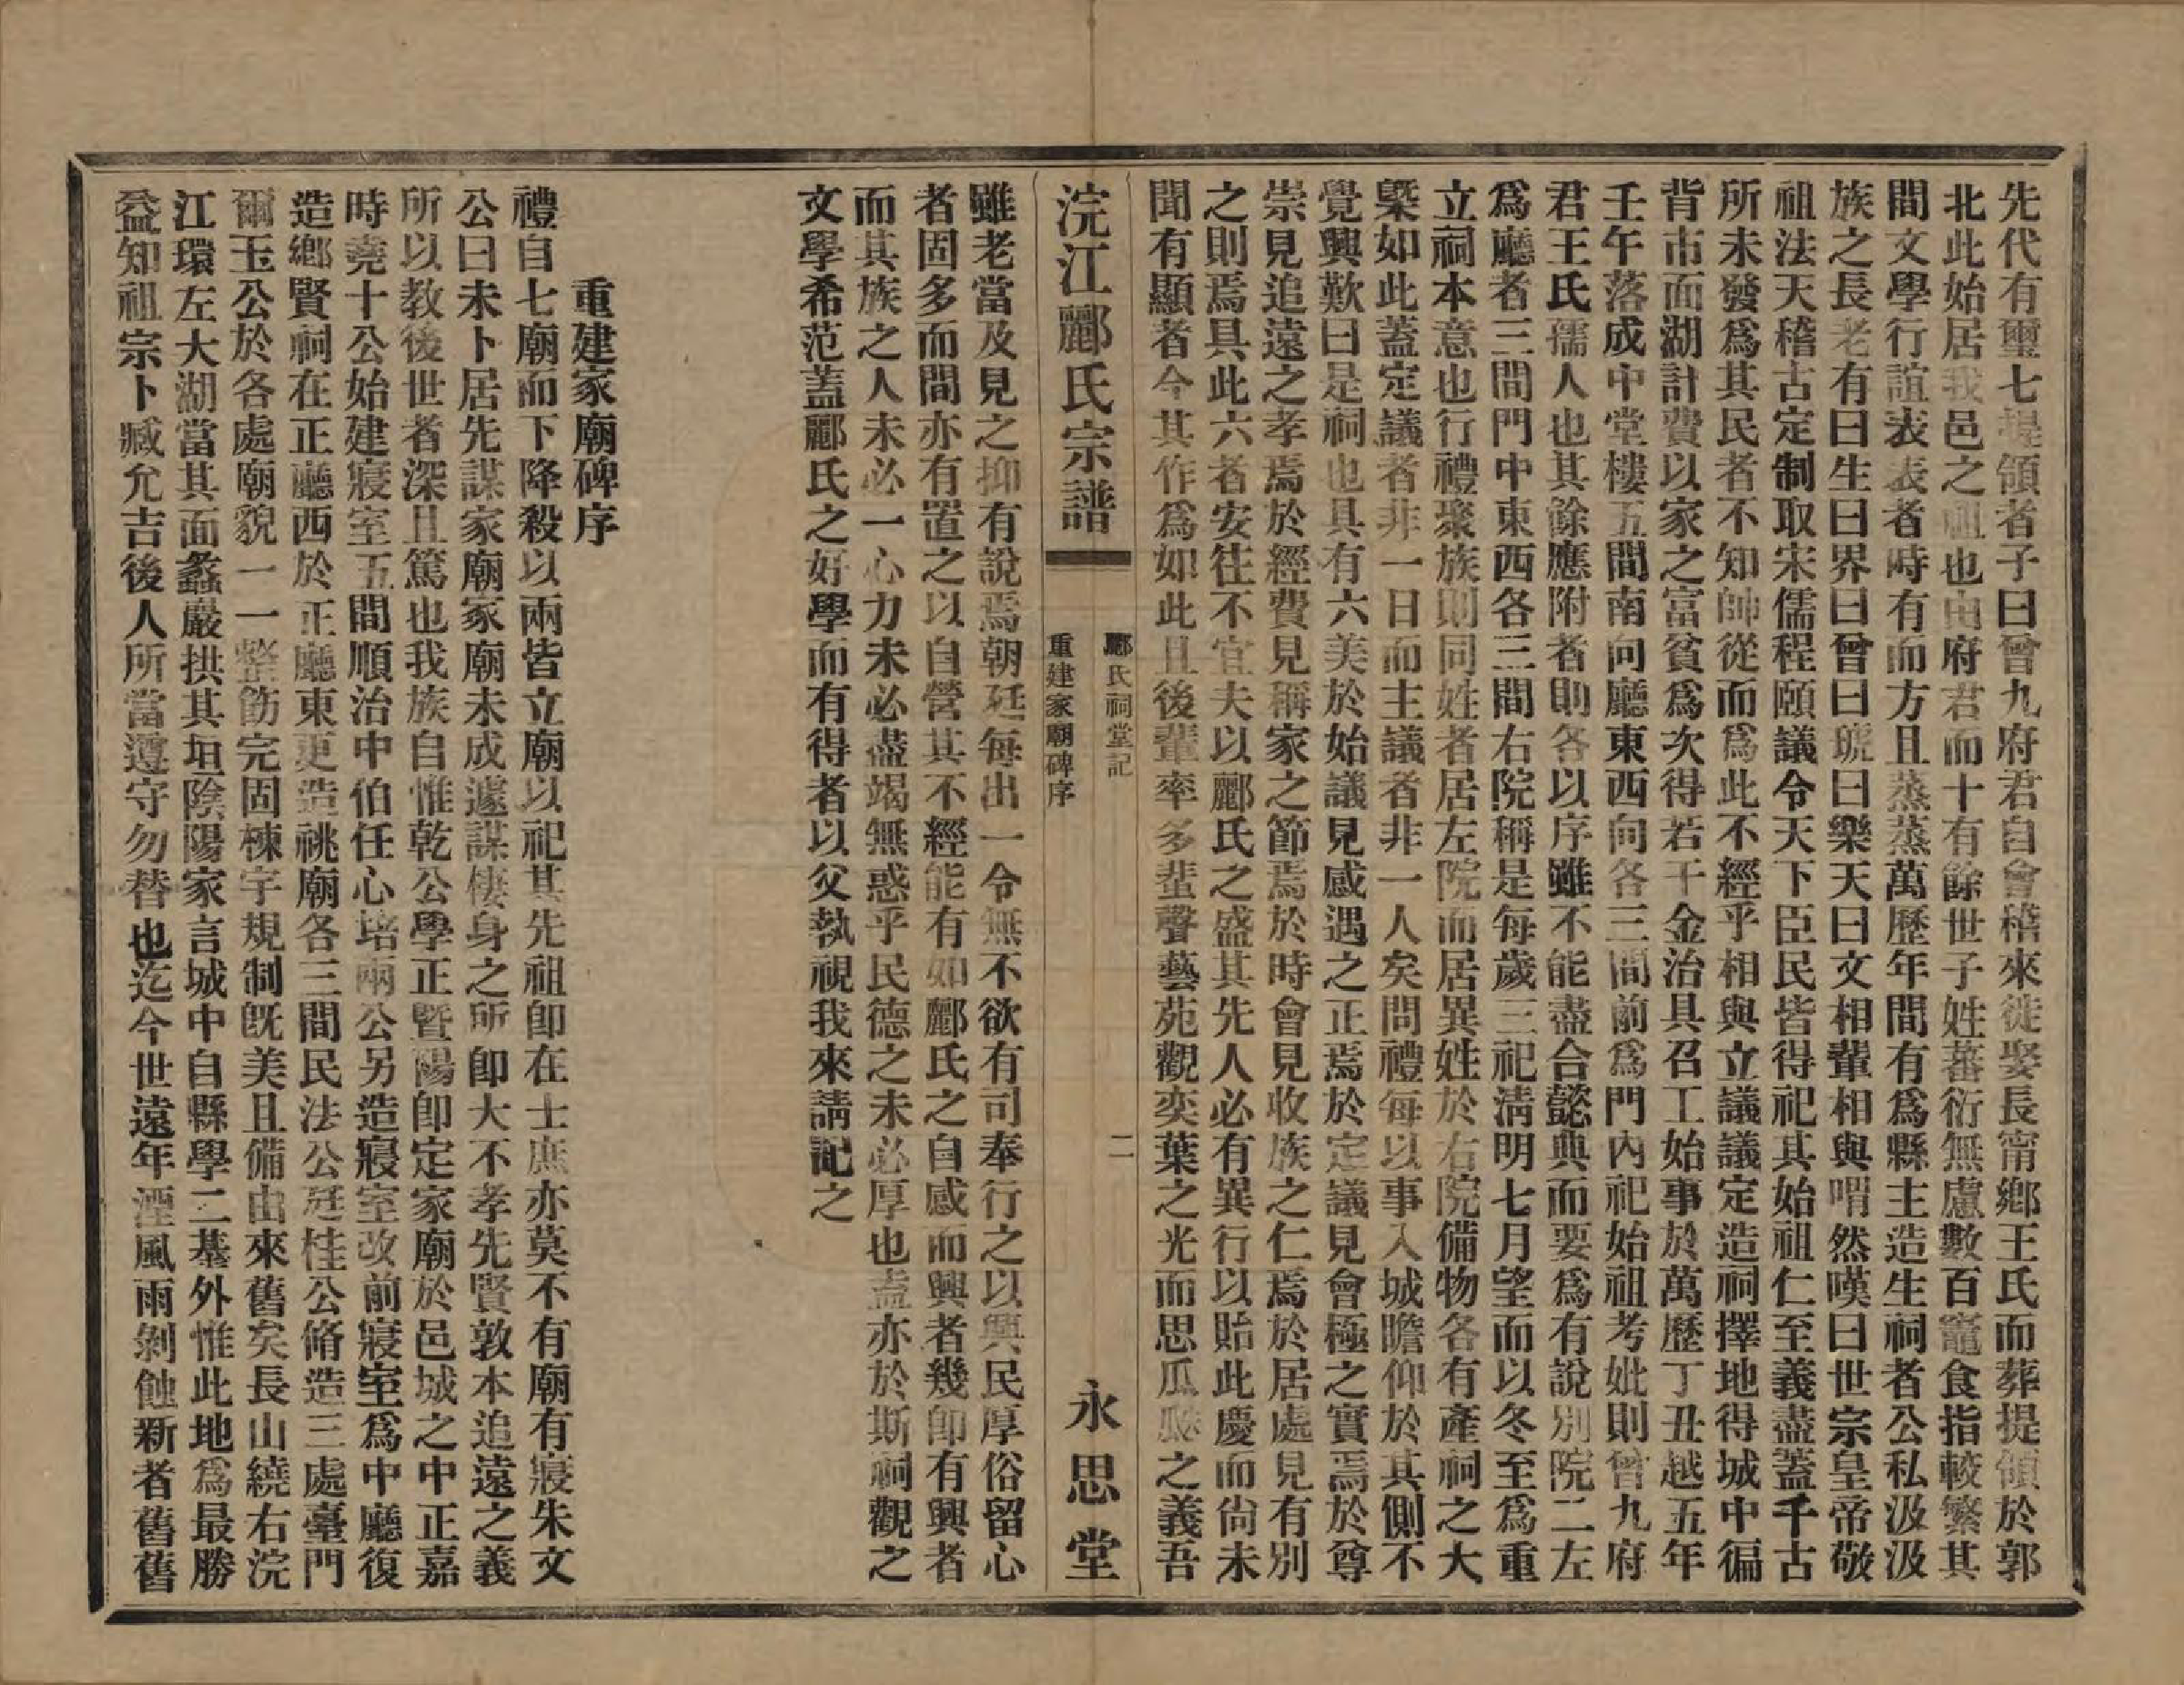 先代有璽七提領者子曰曾九府君自會稽來徙娶長甯鄉王氏而葬提領於郭
北此始居我邑之祖也由府君而十有餘世子姓蕃衍無慮數百竈食指較繁其
間文學行誼表表者時有而方且蒸蒸萬歷年間有為縣主造生祠者公私汲汲
族之長老有曰生曰界曰曾曰琥曰樂天曰文相輩相與喟然嘆曰世宗皇帝敬
祖法天稽古定制取宋儒程頤議令天下臣民皆得祀其始祖仁至義盡蓋千古
所未發為其民者不知帥從而為此不經乎相與立議議定造祠擇地得城中徧
背市面湖計費以家之富貧為次得若干金治具召工始事於萬歷丁丑越五年
壬午落成中堂樓五間南向廳東西向各三間前為門內祀始祖考妣則曾九府
君王氏孺人也其餘應附者則各以序雖不能盡合懿典而要為有說別院二左
為廳者三間門中東西各三間右院稱是每歲三祀淸明七月望而以冬至為重
立祠本意也行禮聚族則同姓者居左院而居異姓於右院備物各有產祠之大
槩如此蓋定議者非一日而主議者非一人矣問禮每以事入城瞻仰於其側不
覺興歎曰是祠也具有六美於始議見感遇之正焉於定議見會極之實焉於尊
崇見追遠之孝焉於經費見稱家之節焉於時會見收族之仁焉於居處見有別
之則焉具此六者安往不宜夫以酈氏之盛其先人必有異行以貽此慶而尙未
聞有顯者今其作為如此且後輩率多蜚聲藝苑觀奕葉之光而思瓜瓞之義吾
浣江酈氏宗譜
酈氏祠堂記
重建家廟碑序
二
永思堂
雖老當及見之抑有說焉朝廷每出一令無不欲有司奉行之以興民厚俗留心
者固多而間亦有置之以自營其不經能有如酈氏之自感而興者幾卽有興者
而其族之人未必一心力未必盡竭無惑乎民德之未必厚也盖亦於斯祠觀之
文學希范蓋酈氏之好學而有得者以父執視我來請記之
重建家廟碑序
禮自七廟而下降殺以兩皆立廟以祀其先祖卽在士庶亦莫不有廟有寢朱文
公曰未卜居先謀家廟家廟未成遽謀棲身之所卽大不孝先賢敦本追遠之義
所以教後世者深且篤也我族自惟乾公學正暨陽卽定家廟於邑城之中正嘉
時堯十公始建寢室五間順治中伯任心培兩公另造寢室改前寢室為中廳復
造鄉賢祠在正廳西於正廳東更造祧廟各三間民法公廷桂公脩造三處臺門
爾玉公於各處廟貌一一整飭完固棟宇規制旣美且備由來舊矣長山繞右浣
江環左大湖當其面蠡巖拱其垣陰陽家言城中自縣學二基外惟此地為最勝
益知祖宗卜臧允吉後人所當遵守勿替也迄今世遠年湮風雨剝蝕新者舊舊